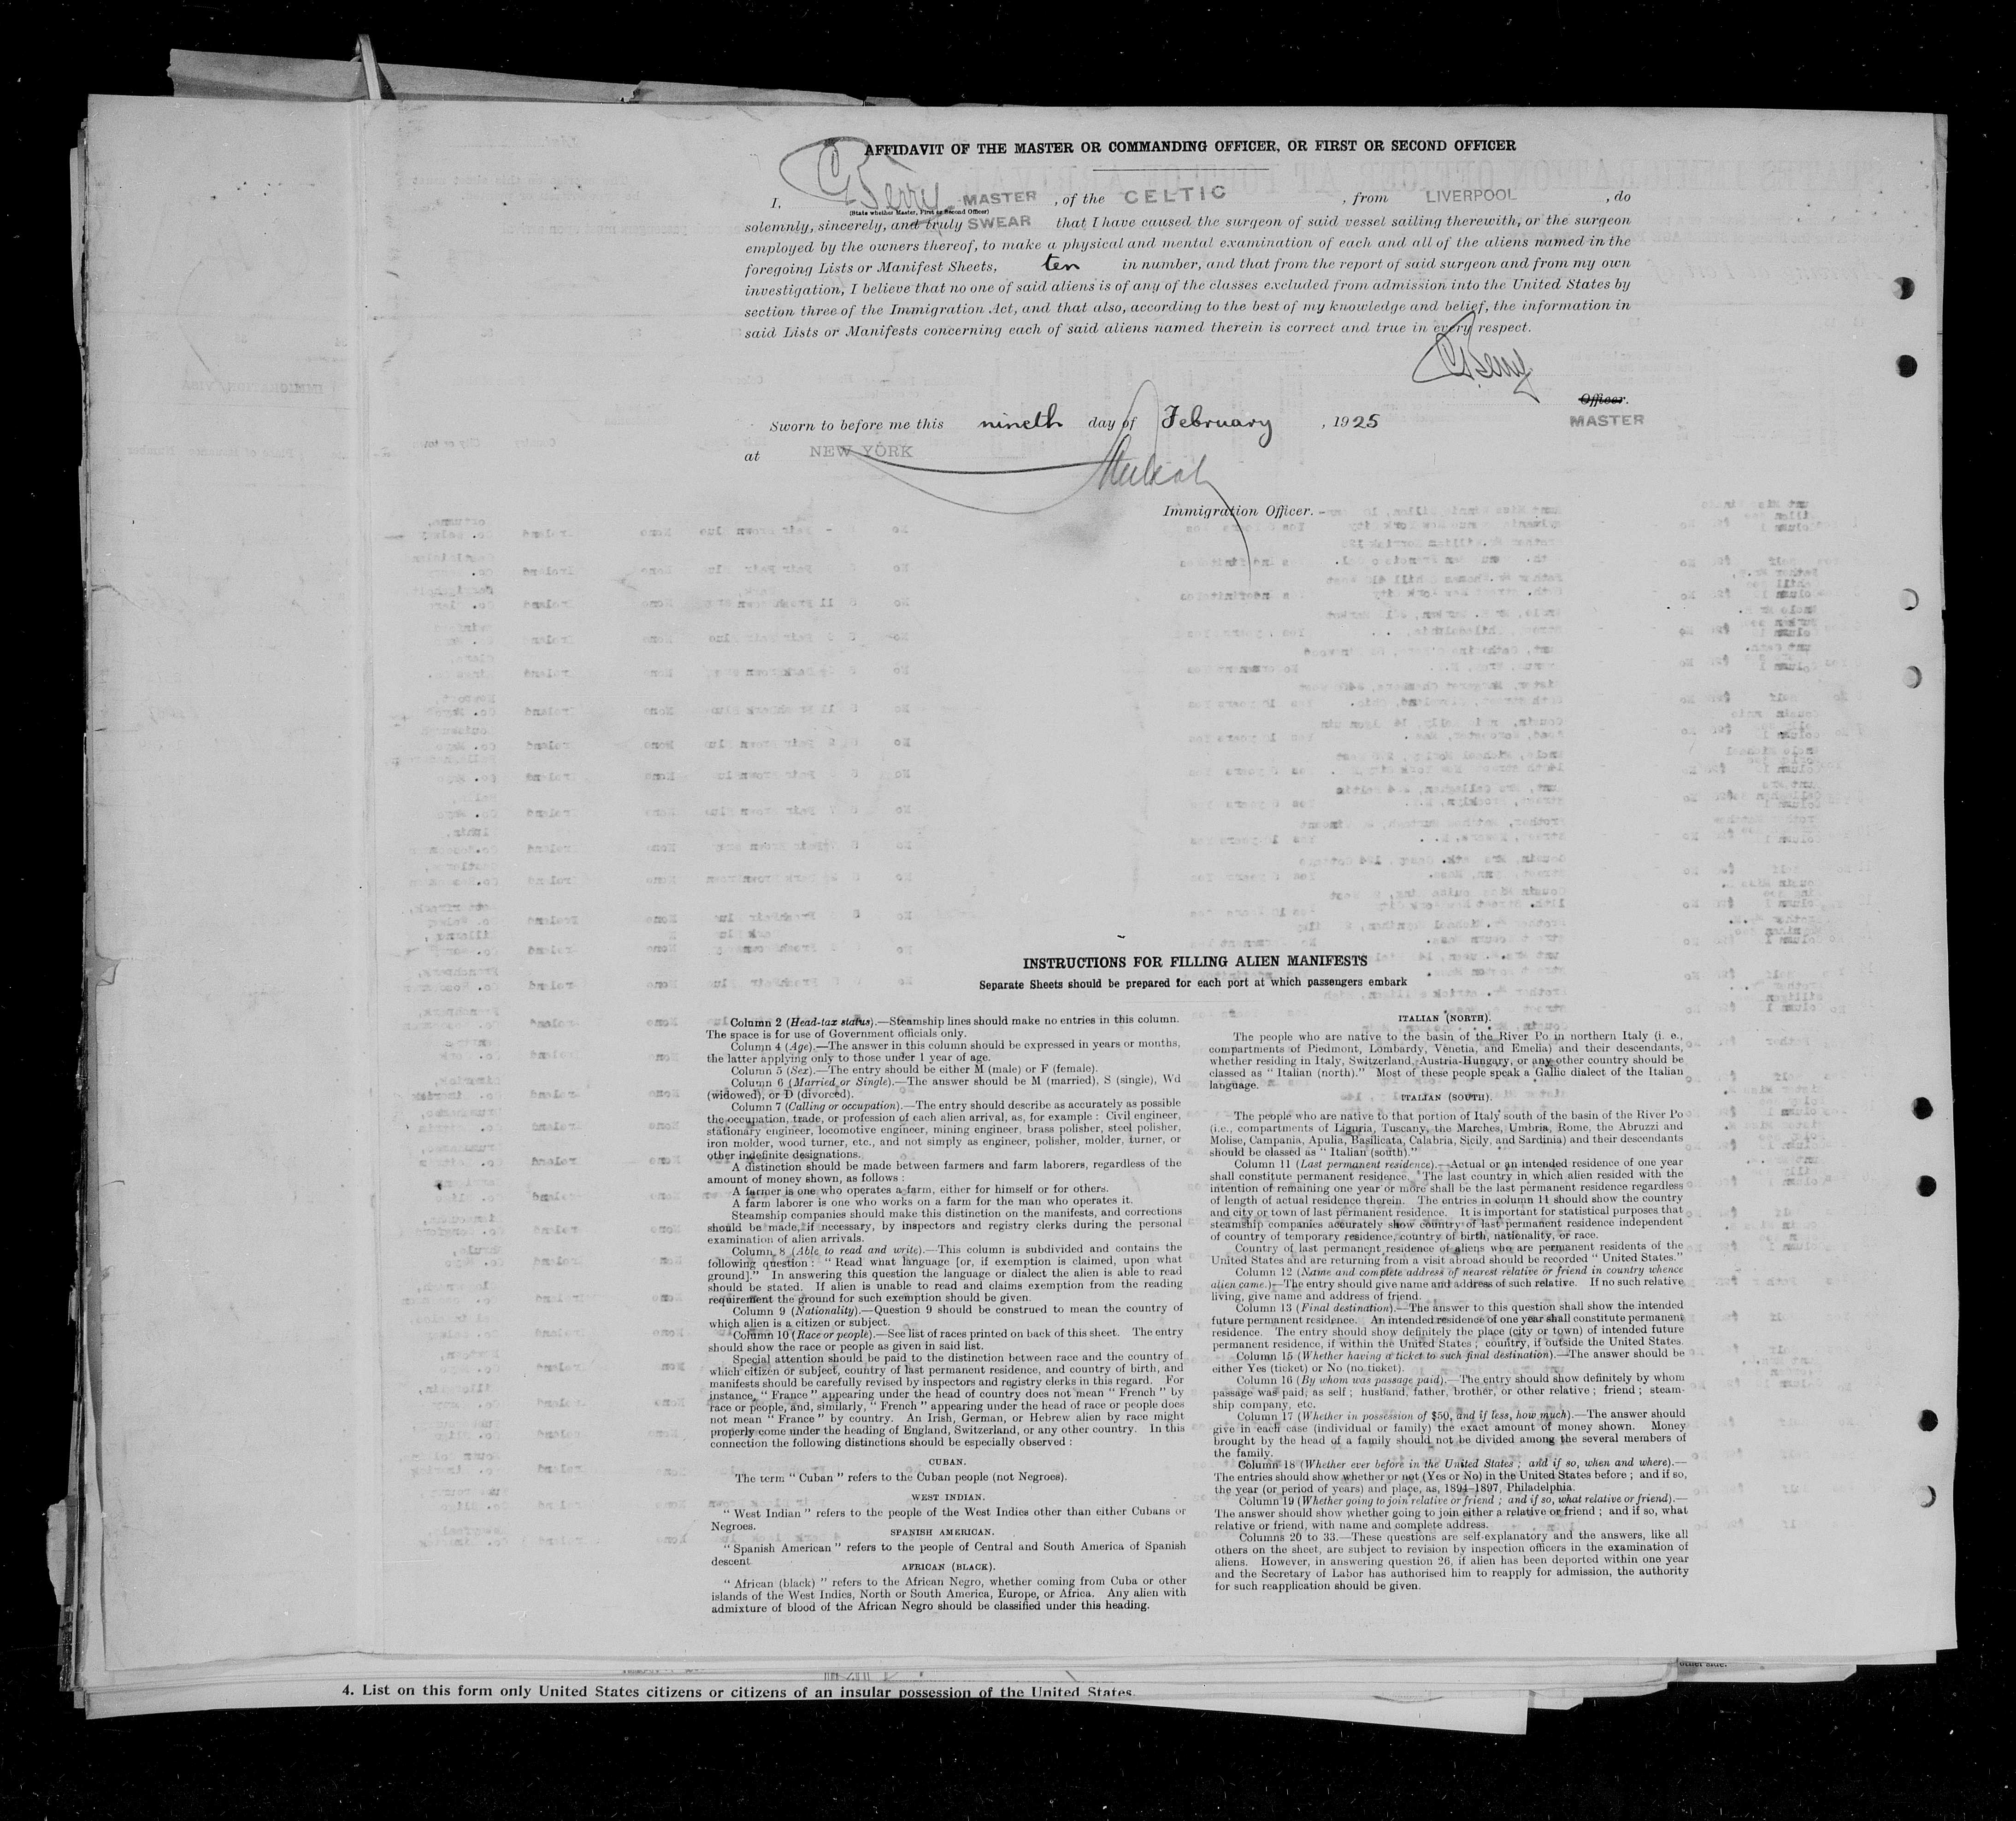 AFFIDAVIT OF THE MASTER OR COMMANDING OFFICER, OR FIRST OR SECOND OFFICER
I, Berry MASTER, of the CELTIC, from LIVERPOOL, do
(State whether Master, First or Second Officer)
solemnly, sincerely, and truly SWEAR that I have caused the surgeon of said vessel sailing therewith, or the surgeon
employed by the owners thereof, to make a physical and mental examination of each and all of the aliens named in the
foregoing Lists or Manifest Sheets, ten in number, and that from the report of said surgeon and from my own
investigation, I believe that no one of said aliens is of any of the classes excluded from admission into the United States by
section three of the Immigration Act, and that also, according to the best of my knowledge and belief, the information in
said Lists or Manifests concerning each of said aliens named therein is correct and true in every respect.
Berry
Officer.
MASTER
Sworn to before me this nineth day of February, 1925
at NEW YORK
Immigration Officer.
INSTRUCTIONS FOR FILLING ALIEN MANIFESTS
Separate Sheets should be prepared for each port at which passengers embark
Column 2 (Head-tax status).—Steamship lines should make no entries in this column.
The space is for use of Government officials only.
Column 4 (Age).—The answer in this column should be expressed in years or months,
the latter applying only to those under 1 year of age.
Column 5 (Sex).—The entry should be either M (male) or F (female).
Column 6 (Married or Single).—The answer should be M (married), S (single), Wd
(widowed), or D (divorced).
Column 7 (Calling or occupation).—The entry should describe as accurately as possible
the occupation, trade, or profession of each alien arrival, as, for example : Civil engineer,
stationary engineer, locomotive engineer, mining engineer, brass polisher, steel polisher,
iron molder, wood turner, etc., and not simply as engineer, polisher, molder, turner, or
other indefinite designations.
A distinction should be made between farmers and farm laborers, regardless of the
amount of money shown, as follows :
A farmer is one who operates a farm, either for himself or for others.
A farm laborer is one who works on a farm for the man who operates it.
Steamship companies should make this distinction on the manifests, and corrections
should be made, if necessary, by inspectors and registry clerks during the personal
examination of alien arrivals.
Column 8 (Able to read and write).—This column is subdivided and contains the
following question : “ Read what language [or, if exemption is claimed, upon what
ground].” In answering this question the language or dialect the alien is able to read
should be stated. If alien is unable to read and claims exemption from the reading
requirement the ground for such exemption should be given.
Column 9 (Nationality).—Question 9 should be construed to mean the country of
which alien is a citizen or subject.
Column 10 (Race or people).—See list of races printed on back of this sheet. The entry
should show the race or people as given in said list.
Special attention should be paid to the distinction between race and the country of
which citizen or subject, country of last permanent residence, and country of birth, and
manifests should be carefully revised by inspectors and registry clerks in this regard. For
instance, “ France ” appearing under the head of country does not mean “ French ” by
race or people, and, similarly, “ French ” appearing under the head of race or people does
not mean “ France ” by country. An Irish, German, or Hebrew alien by race might
properly come under the heading of England, Switzerland, or any other country. In this
connection the following distinctions should be especially observed :
CUBAN.
The term “ Cuban ” refers to the Cuban people (not Negroes).
WEST INDIAN.
“ West Indian ” refers to the people of the West Indies other than either Cubans or
Negroes.
SPANISH AMERICAN.
“ Spanish American ” refers to the people of Central and South America of Spanish
descent.
AFRICAN (BLACK).
“ African (black) ” refers to the African Negro, whether coming from Cuba or other
islands of the West Indies, North or South America, Europe, or Africa. Any alien with
admixture of blood of the African Negro should be classified under this heading.
ITALIAN (NORTH).
The people who are native to the basin of the River Po in northern Italy (i. e.,
compartments of Piedmont, Lombardy, Venetia, and Emelia) and their descendants,
whether residing in Italy, Switzerland, Austria-Hungary, or any other country should be
classed as “ Italian (north).” Most of these people speak a Gallic dialect of the Italian
language.
ITALIAN (SOUTH).
The people who are native to that portion of Italy south of the basin of the River Po
(i.e., compartments of Liguria, Tuscany, the Marches, Umbria, Rome, the Abruzzi and
Molise, Campania, Apulia, Basilicata, Calabria, Sicily, and Sardinia) and their descendants
should be classed as “ Italian (south).”
Column 11 (Last permanent residence).—Actual or an intended residence of one year
shall constitute permanent residence. The last country in which alien resided with the
intention of remaining one year or more shall be the last permanent residence regardless
of length of actual residence therein. The entries in column 11 should show the country
and city or town of last permanent residence. It is important for statistical purposes that
steamship companies accurately show country of last permanent residence independent
of country of temporary residence, country of birth, nationality, or race.
Country of last permanent residence of aliens who are permanent residents of the
United States and are returning from a visit abroad should be recorded “ United States.”
Column 12 (Name and complete address of nearest relative or friend in country whence
alien came.)—The entry should give name and address of such relative. If no such relative
living, give name and address of friend.
Column 13 (Final destination).—The answer to this question shall show the intended
future permanent residence. An intended residence of one year shall constitute permanent
residence. The entry should show definitely the place (city or town) of intended future
permanent residence, if within the United States ; country, if outside the United States.
Column 15 (Whether having a ticket to such final destination).—The answer should be
either Yes (ticket) or No (no ticket).
Column 16 (By whom was passage paid).—The entry should show definitely by whom
passage was paid, as self ; husband, father, brother, or other relative ; friend ; steam-
ship company, etc.
Column 17 (Whether in possession of $50, and if less, how much).—The answer should
give in each case (individual or family) the exact amount of money shown. Money
brought by the head of a family should not be divided among the several members of
the family.
Column 18 (Whether ever before in the United States ; and if so, when and where).—
The entries should show whether or not (Yes or No) in the United States before ; and if so,
the year (or period of years) and place, as, 1894–1897, Philadelphia.
Column 19 (Whether going to join relative or friend ; and if so, what relative or friend).—
The answer should show whether going to join either a relative or friend ; and if so, what
relative or friend, with name and complete address.
Columns 20 to 33.—These questions are self-explanatory and the answers, like all
others on the sheet, are subject to revision by inspection officers in the examination of
aliens. However, in answering question 26, if alien has been deported within one year
and the Secretary of Labor has authorised him to reapply for admission, the authority
for such reapplication should be given.
other side.
4. List on this form only United States citizens or citizens of an insular possession of the United States.